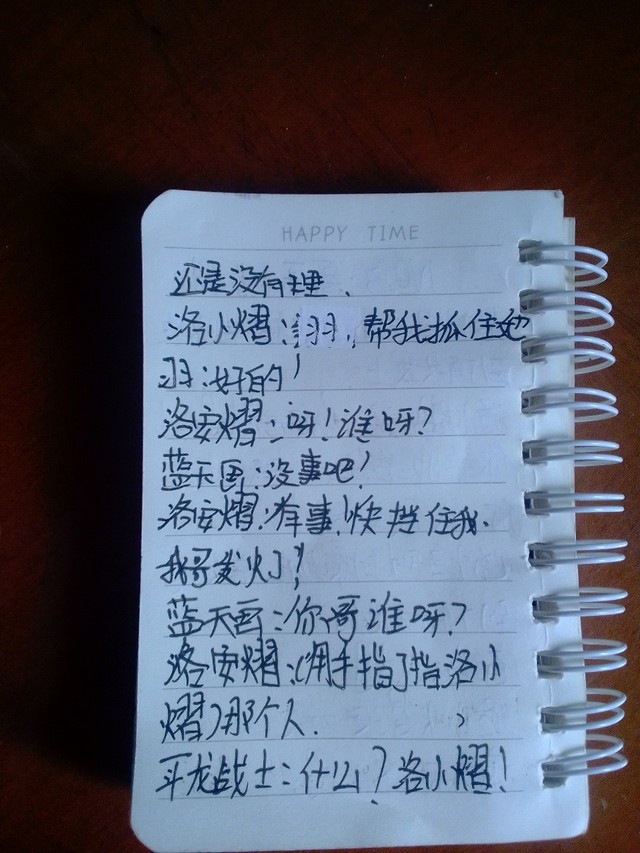 HAPPY TIME
还是没有理、
洛小熠:羽羽,帮我抓住她
羽:好的!
洛安熠:呀!谁呀?
蓝天画:没事吧!
洛安熠:有事!快挡住我.
我哥发火了!
蓝天画:你哥谁呀?
洛安熠:(用手指了指洛小
熠)那个人.
斗龙战士:什么?洛小熠!